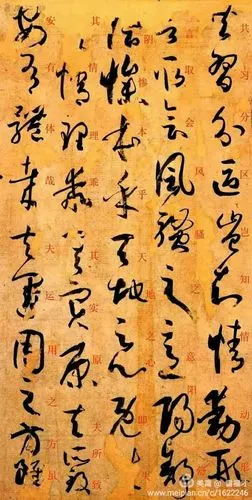 共習分區豈知情動形
言取會風騷之意陽舒
陰慘本乎天地之心既
其情理乖其實原夫所致
安有體哉夫運用之方雖
美篇
www.meipian.cn/c/1622246